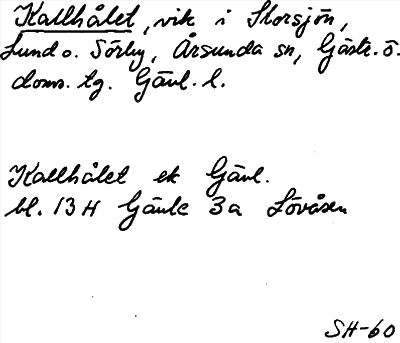 Kallhålet, vik i Storsjön,
Lund o. Sörby, Årsunda sn, Gästr. ö.
doms. tg. Gävl. l.
Kallhålet ek Gävl.
bl. 13 H Gävle 3a Lövåsen
SH-60